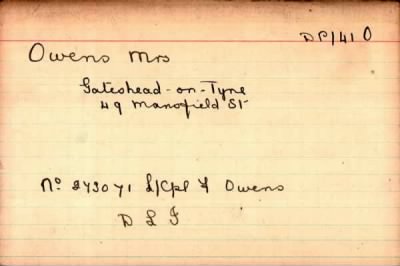 DP/41 O
Owens Mrs
Gateshead-on-Tyne
49 Mansfield St
No 273071 L/Cpl F Owens
D L I